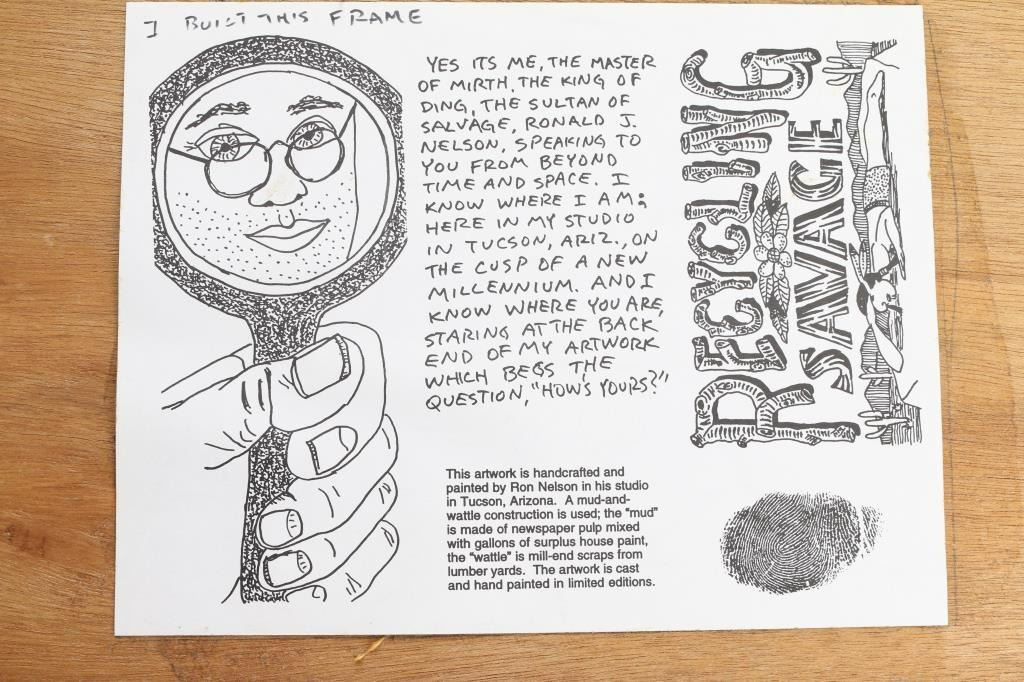 I BUILT THIS FRAME
YES ITS ME, THE MASTER
OF MIRTH, THE KING OF
DING, THE SULTAN OF
SALVAGE, RONALD J.
NELSON, SPEAKING TO
YOU FROM BEYOND
TIME AND SPACE. I
KNOW WHERE I AM;
HERE IN MY STUDIO
IN TUCSON, ARIZ., ON
THE CUSP OF A NEW
MILLENNIUM. AND I
KNOW WHERE YOU ARE,
STARING AT THE BACK
END OF MY ARTWORK
WHICH BEGS THE
QUESTION, "HOW'S YOURS?"
This artwork is handcrafted and
painted by Ron Nelson in his studio
in Tucson, Arizona. A mud-and-
wattle construction is used; the "mud"
is made of newspaper pulp mixed
with gallons of surplus house paint,
the "wattle" is mill-end scraps from
lumber yards. The artwork is cast
and hand painted in limited editions.
RECYCLING
SAVAGE